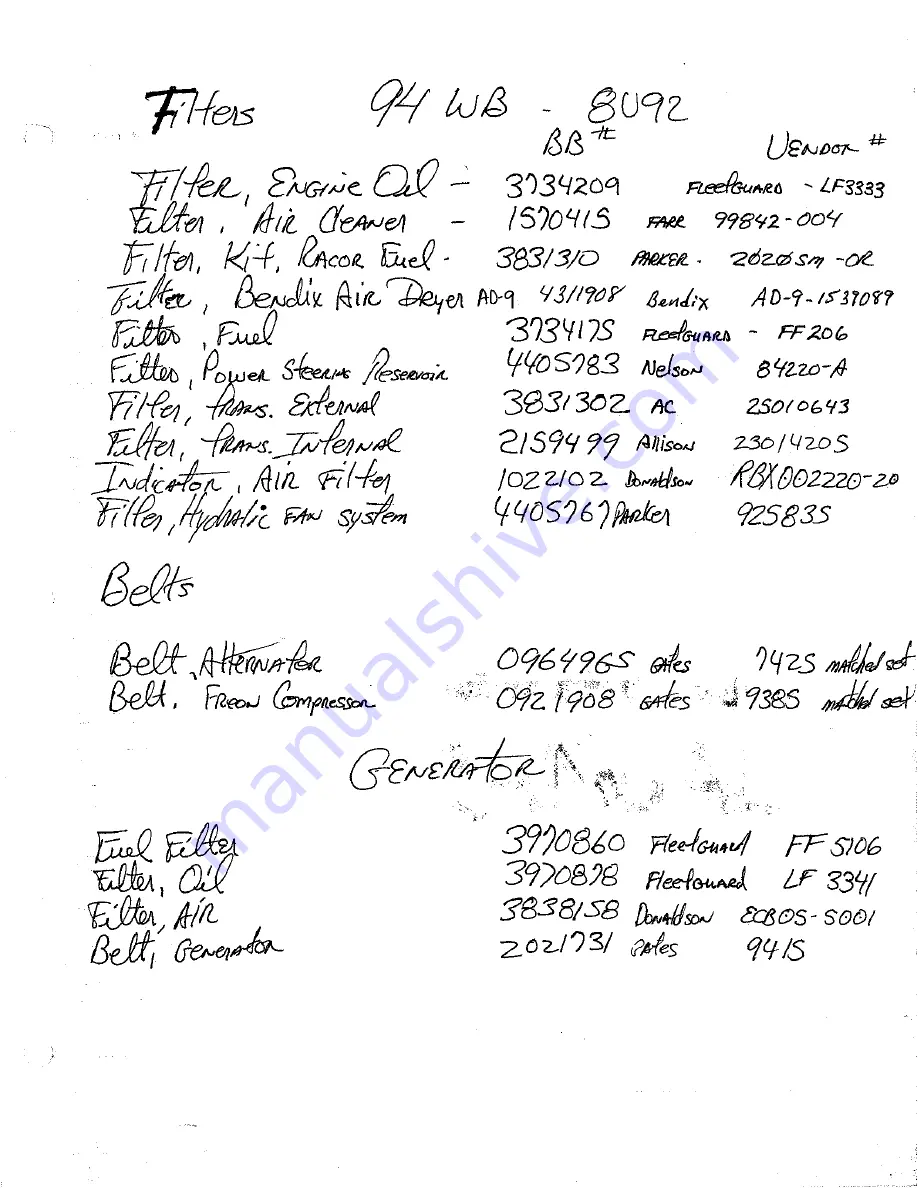 Filters 94 WB - 8V92
BB# Vendor #
Filter, Engine Oil - 3734209 Fleetguard - LF3333
Filter, Air Cleaner - 1570415 FARR 99842-004
Filter, Kit, Racor Fuel - 3831310 PARKER - 2020SM-OR
Filter, Bendix Air Dryer AD-9 4311908 Bendix AD-9-1539089
Filter, Fuel 3734175 Fleetguard - FF206
Filter, Power Steering Reservoir 4405783 Nelson 84220-A
Filter, trans. External 3831302 AC 25010643
Filter, trans. Internal 2159499 Allison 23014205
Indicator, Air Filter 1022102 Donaldson RBX002220-20
Filter, Hydralic FAN system 4405767 Parker 925835
Belts
Belt, Alternator 0964965 Gates 7425 matched set
Belt, Freon Compressor 0921908 Gates 9385 matched set
Generator
Fuel Filter 3970860 Fleetguard FF 5106
Filter, Oil 3970878 Fleetguard LF 3341
Filter, AIR 3838158 Donaldson ECB05-5001
Belt, Generator 2021731 Gates 9415
manualshive.com